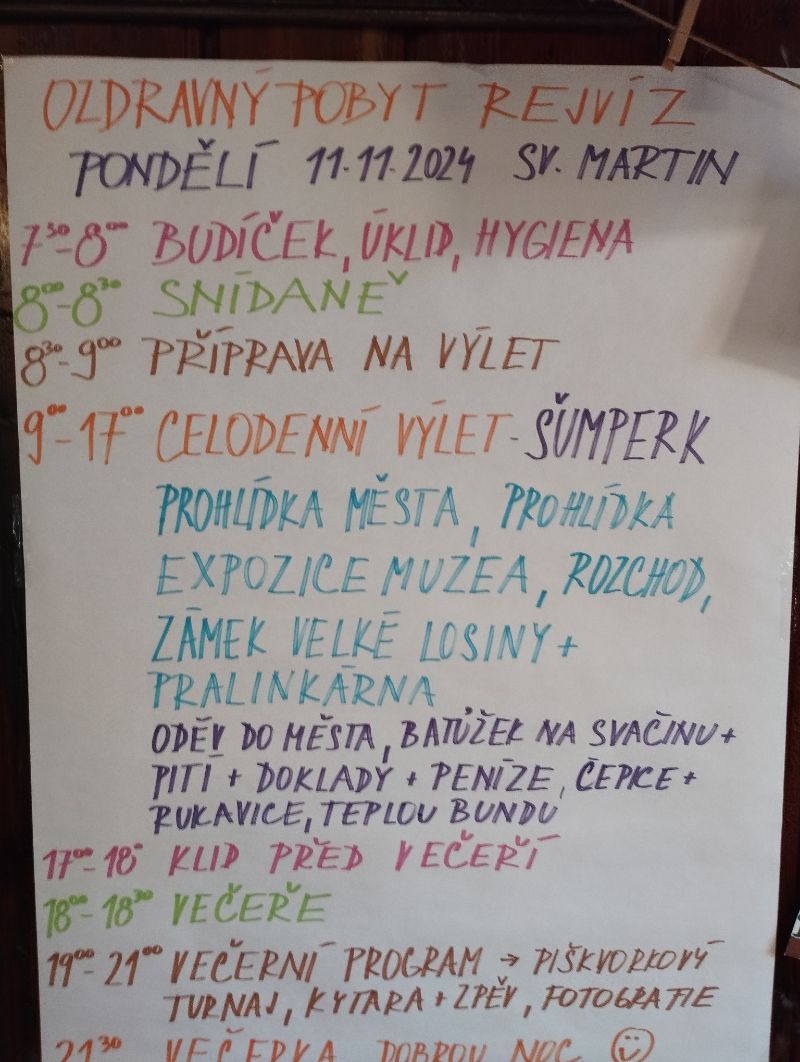 OZDRAVNÝ POBYT REJVÍZ
PONDĚLÍ 11.11.2024 SV. MARTIN
7³⁰-8⁰⁰ BUDÍČEK, ÚKLID, HYGIENA
8⁰⁰-8³⁰ SNÍDANĚ
8³⁰-9⁰⁰ PŘÍPRAVA NA VÝLET
9⁰⁰-17⁰⁰ CELODENNÍ VÝLET - ŠUMPERK
PROHLÍDKA MĚSTA, PROHLÍDKA
EXPOZICE MUZEA, ROZCHOD,
ZÁMEK VELKÉ LOSINY +
PRALINKÁRNA
ODĚV DO MĚSTA, BATŮŽEK NA SVAČINU +
PITÍ + DOKLADY + PENÍZE, ČEPICE +
RUKAVICE, TEPLOU BUNDU
17⁰⁰-18⁰ KLID PŘED VEČEŘÍ
18⁰⁰-18³⁰ VEČEŘE
19⁰⁰-21⁰⁰ VEČERNÍ PROGRAM → PIŠKVORKOVÝ
TURNAJ, KYTARA + ZPĚV, FOTOGRAFIE
21³⁰ VEČERKA DOBROU NOC ☺